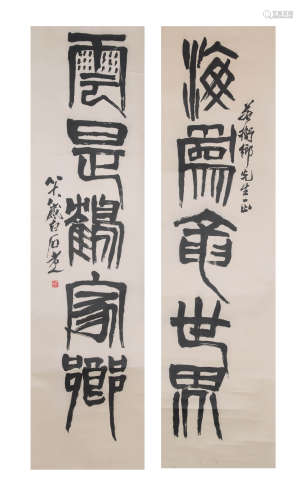 海為龍世界
衡鄉先生正
雲是鶴家鄉
歲白石老人